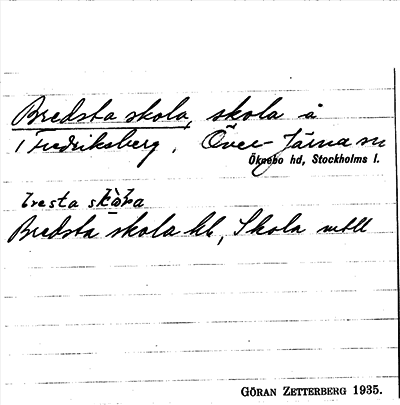 Bredsta skola, skola å
1 Fredriksberg, Över-Järna sn
Öknebo hd, Stockholms l.
Bredsta skola hl, Skola
GÖRAN ZETTERBERG 1935.